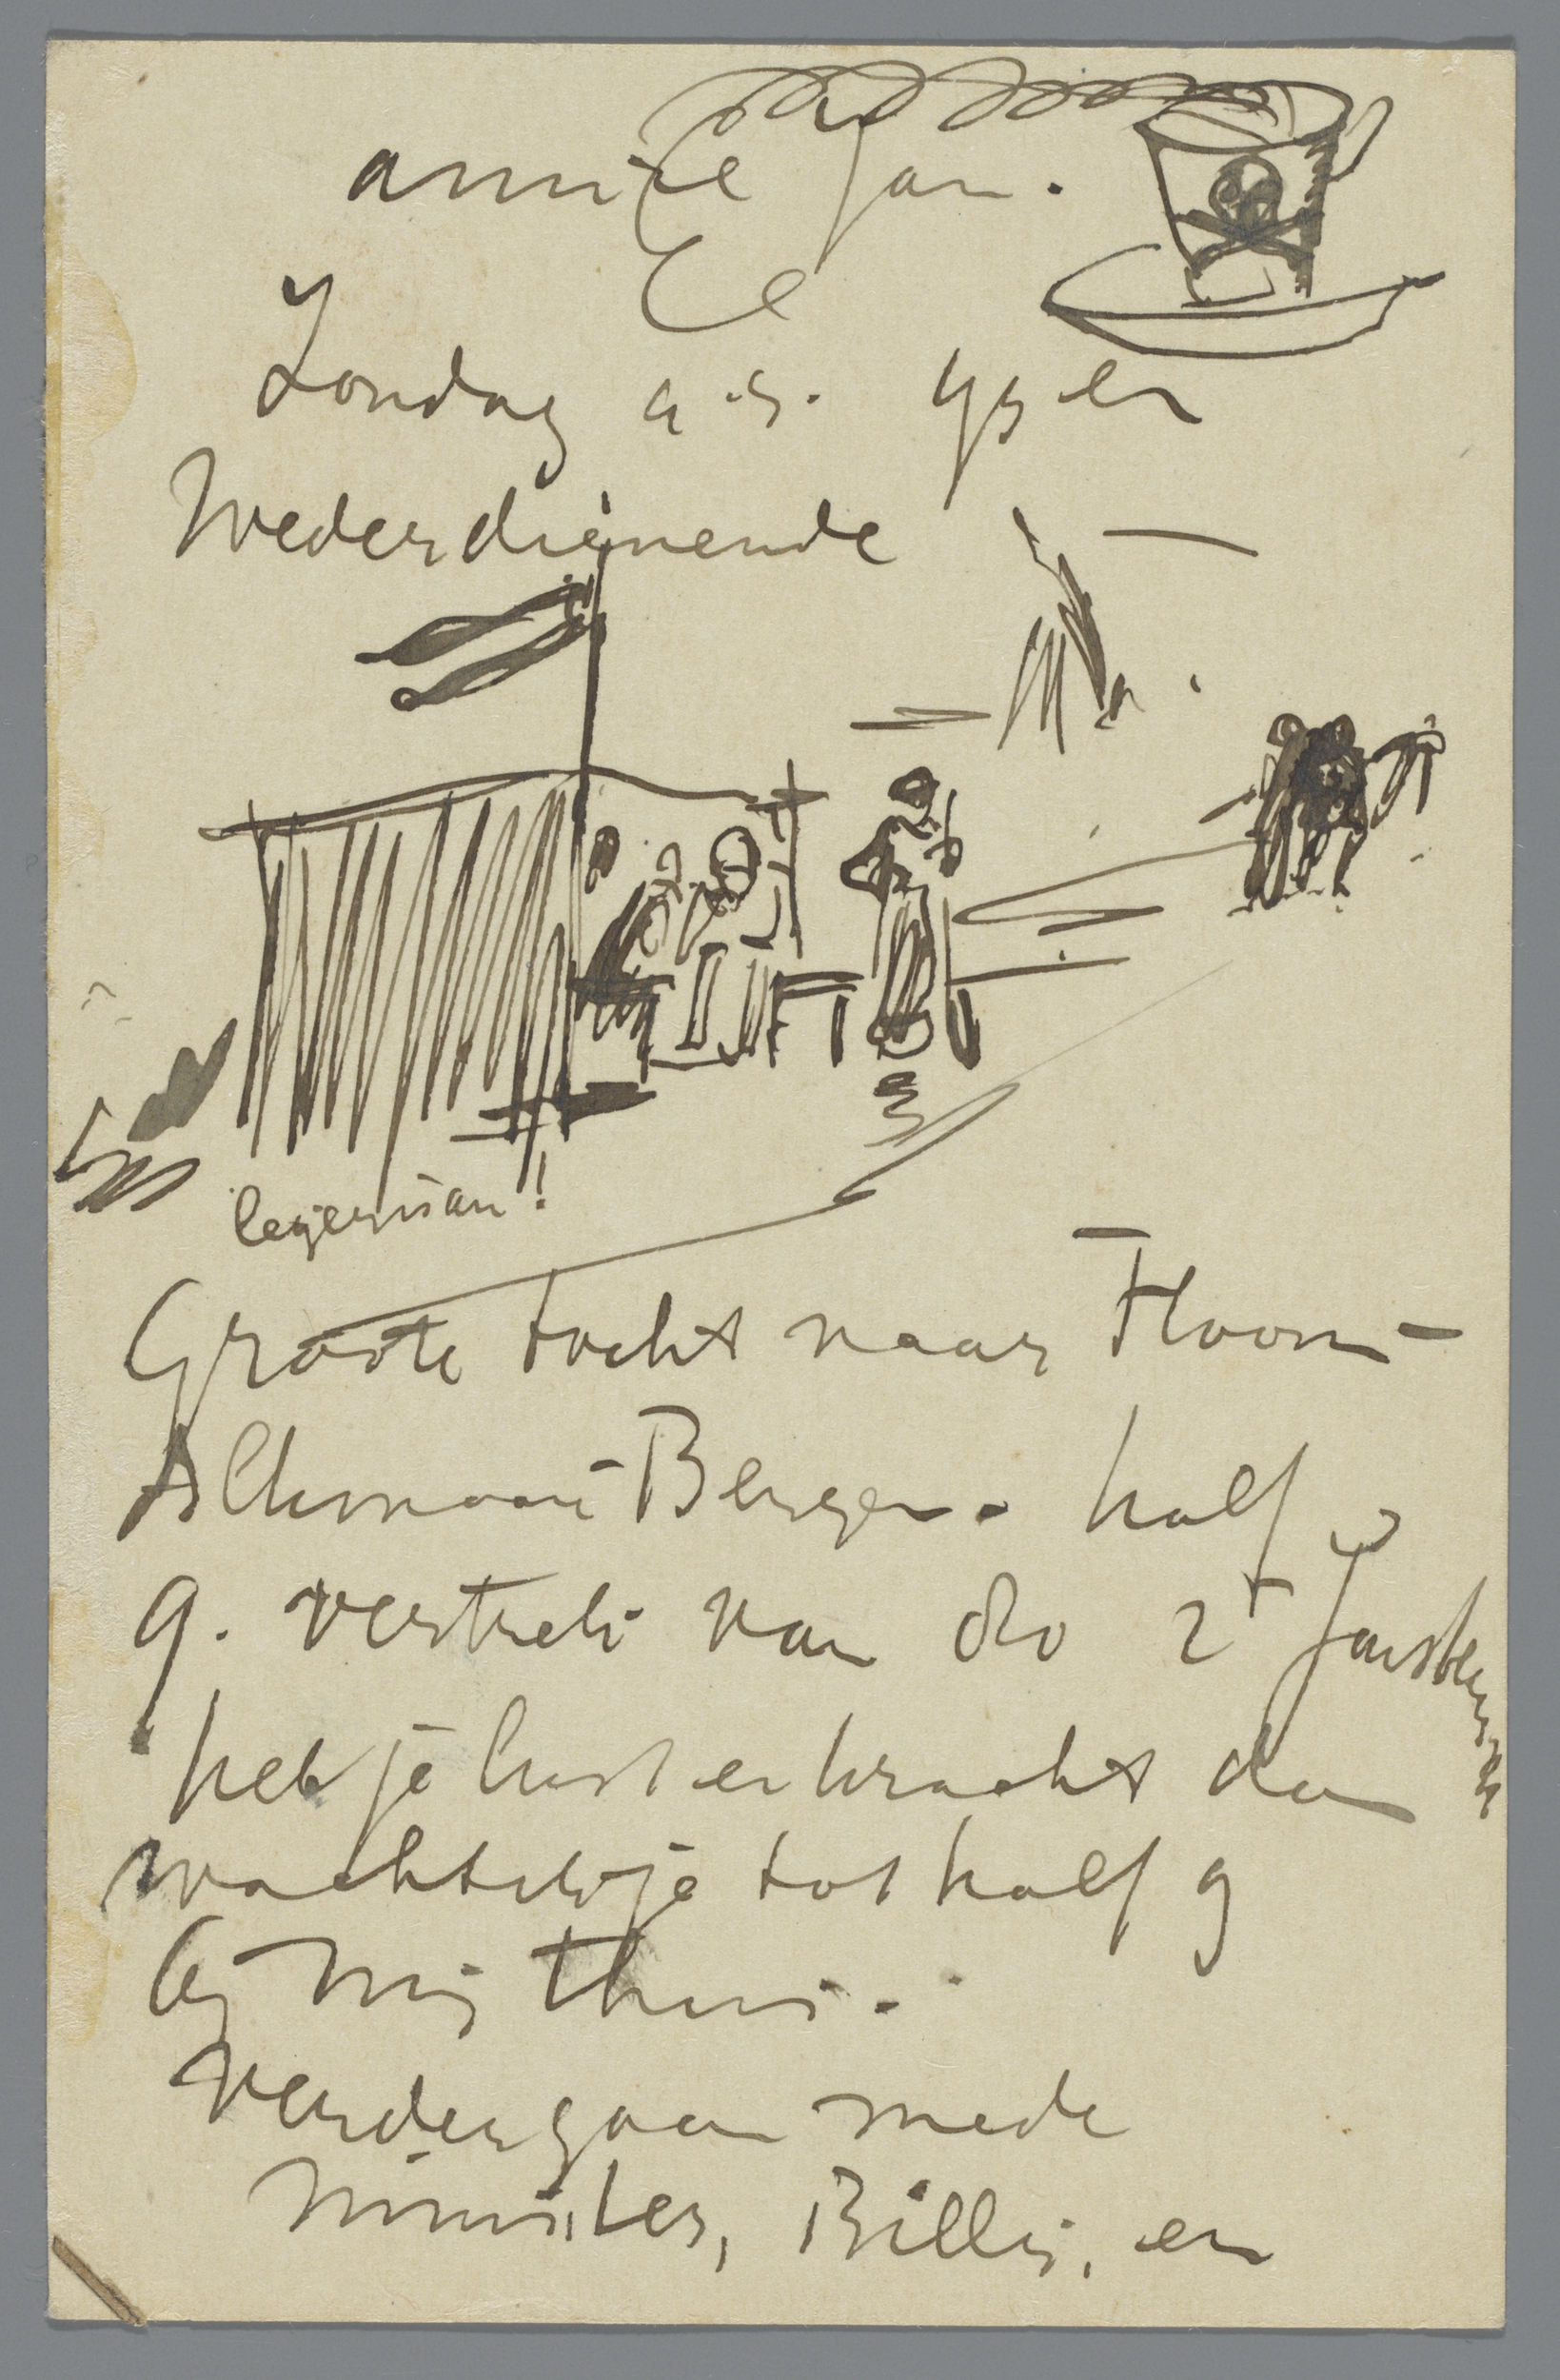 amice Jan.
Zondag a.s. ys en
Wederdienende
legerman!
Groote tocht naar Hoorn-
Alkmaar-Bergen. half
9. vertrek van do 2e Jan steen
heb je lust en kracht dan
wacht ik je tot half 9
by mij thuis.
Verder gaan mede
Minister, Billy, en